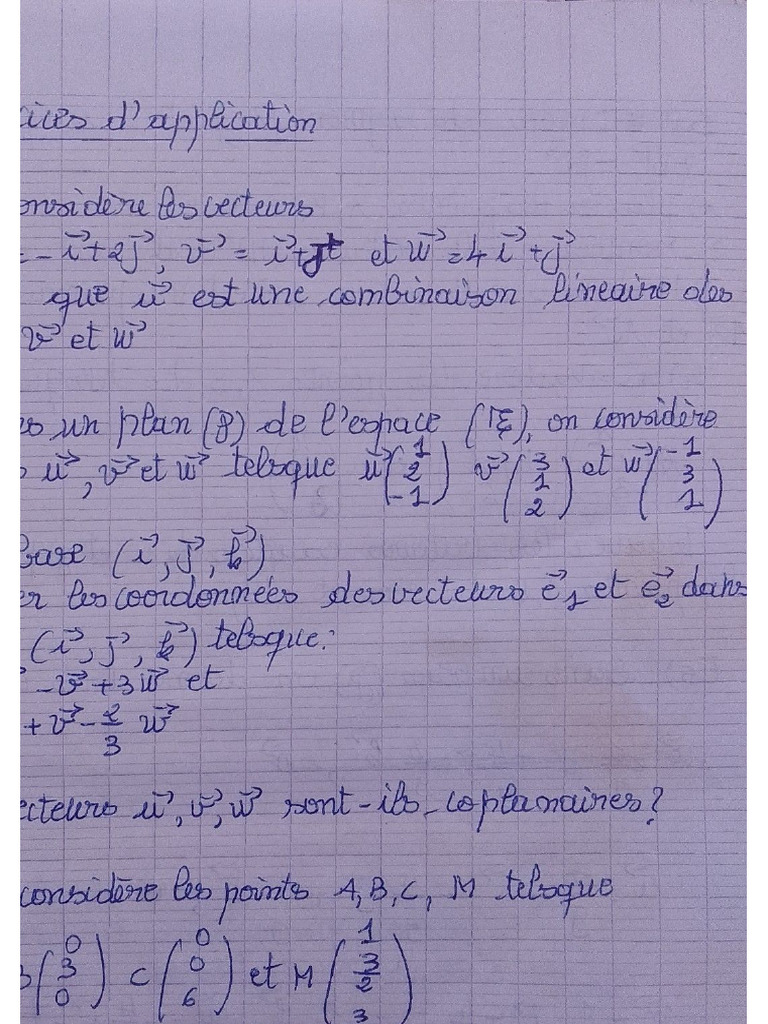 ices d'application
onsidère les vecteurs
= -i⃗ + 2j⃗, v⃗ = i⃗ + j⃗ et w⃗ = 4i⃗ + j⃗
que u⃗ est une combinaison lineaire des
v⃗ et w⃗
s un plan (P) de l'espace (E), on considère
u⃗, v⃗ et w⃗ telsque u⃗(1 2 -1) v⃗(3 1 2) et w⃗(-1 3 1)
base (i⃗, j⃗, k⃗)
er les coordonnées des vecteurs e⃗₁ et e⃗₂ dans
(i⃗, j⃗, k⃗) telsque:
-v⃗ + 3w⃗ et
+ v⃗ - 2/3 w⃗
ecteurs u⃗, v⃗, w⃗ sont-ils-coplanaires?
considère les points A, B, C, M telsque
B(0 3 0) C(0 0 6) et M(1 3/2 3)